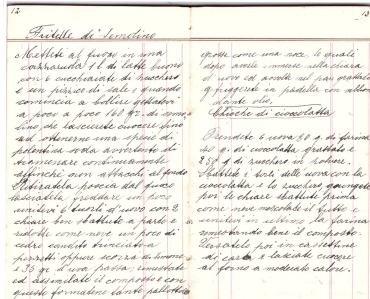 12
Fritelle di Semolino
Mettete al fuoco in una
cazzaruola 1 l di latte buono
con 6 cucchiaiate di zucchero
e un pizzico di sale e quando
comincia a bollire gettatevi
a poco a poco 160 gr. di semo
lino, che lascerete cuocere fino
ad ottenerne una specie di
polentina soda avvertendo di
tramenare continuamente
affinchè non attacchi al fondo
Ritiratela poscia dal fuoco
lasciatela freddare un poco
unitevi 4 tuorli d'uovo con 2
chiare ben sbattute a parte e
ridotte come neve un poco di
cedro candito trinciato a
pezzetti oppure scorza di limone
e 35 gr. d'uva passa, mescolate
ed assimilate il composto e con
questo formatene tante pallottole
13
grosse come una noce, le quali
dopo averle immerse nella chiara
d'uovo ed avvolte nel pan grattato
friggerete in padella con abbon
dante olio.
Chicche di cioccolatta
Prendete 6 uova 80 g. di farina
40 g. di cioccolatta grattato e
250 g di zucchero in polvere.
Sbattete i torli delle uova con la
cioccolatta e lo zucchero, giungete
poi le chiare sbattute prima
come neve mescolate il tutto e
unitevi in ultimo la farina
rimestando bene il composto.
Versatelo poi in cassettine
di carta e lasciate cuocere
al forno a moderato calore.